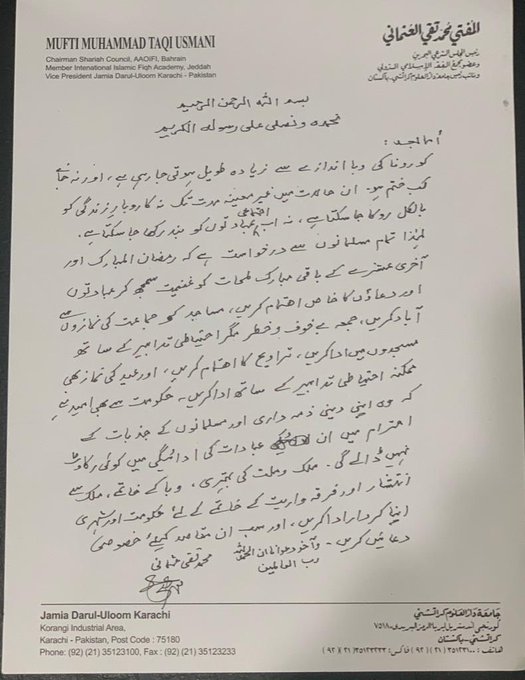 MUFTI MUHAMMAD TAQI USMANI
Chairman Shariah Council, AAOIFI, Bahrain
Member International Islamic Fiqh Academy, Jeddah
Vice President Jamia Darul-Uloom Karachi - Pakistan
المفتي محمد تقي العثماني
رئيس المجلس الشرعي البحرين
وعضو مجمع الفقه الإسلامي الدولي
ونائب رئيس جامعة دارالعلوم كراتشي ـ باكستان
بسم اللہ الرحمن الرحیم
نحمدہ و نصلی علی رسولہ الکریم
أما بعد :
کورونا کی وبا اندازے سے زیادہ طویل ہوتی جا رہی ہے ، اور نہ جانے
کب ختم ہو۔ ان حالات میں غیر معینہ مدت تک نہ کاروبار زندگی کو
بالکل روکا جا سکتا ہے ، نہ اجتماعی عبادتوں کو بند رکھا جا سکتا ہے۔
لہٰذا تمام مسلمانوں سے درخواست ہے کہ رمضان المبارک اور
آخری عشرے کے باقی مبارک لمحات کو غنیمت سمجھ کر عبادتوں
اور دعاؤں کا خاص اہتمام کریں، مساجد کو جماعت کی نمازوں سے
آباد کریں، جمعہ بے خوف و خطر مگر احتیاطی تدابیر کے ساتھ
مسجدوں میں ادا کریں، تراویح کا اہتمام کریں، اور عید کی نماز بھی
ممکنہ احتیاطی تدابیر کے ساتھ ادا کریں۔ حکومت سے بھی امید ہے
کہ وہ اپنی دینی ذمہ داری اور مسلمانوں کے جذبات کے
احترام میں ان عبادات کی ادائیگی میں کوئی رکاوٹ
نہیں ڈالے گی۔ ملک و ملت کی بہتری ، وبا کے خاتمے، ملک سے
انتشار اور فرقہ واریت کے خاتمے کے لئے حکومت اور شہری
اپنا کردار ادا کریں، اور سب ان مقاصد کیلئے خصوصی
دعائیں کریں۔ وآخر دعوانا ان الحمد للہ
رب العالمین
محمد تقی عثمانی
Jamia Darul-Uloom Karachi
Korangi Industrial Area,
Karachi - Pakistan, Post Code : 75180
Phone: (92) (21) 35123100, Fax : (92) (21) 35123233
جامعة دارالعلوم كراتشي
كورنجي اندستريل ايريا الرمز البريدي ٧٥١٨٠
كراتشي ـ باكستان
هاتف : ٣٥١٢٣١٠٠ (٢١) (٩٢) فاكس : ٣٥١٢٣٢٣٣ (٢١) (٩٢)